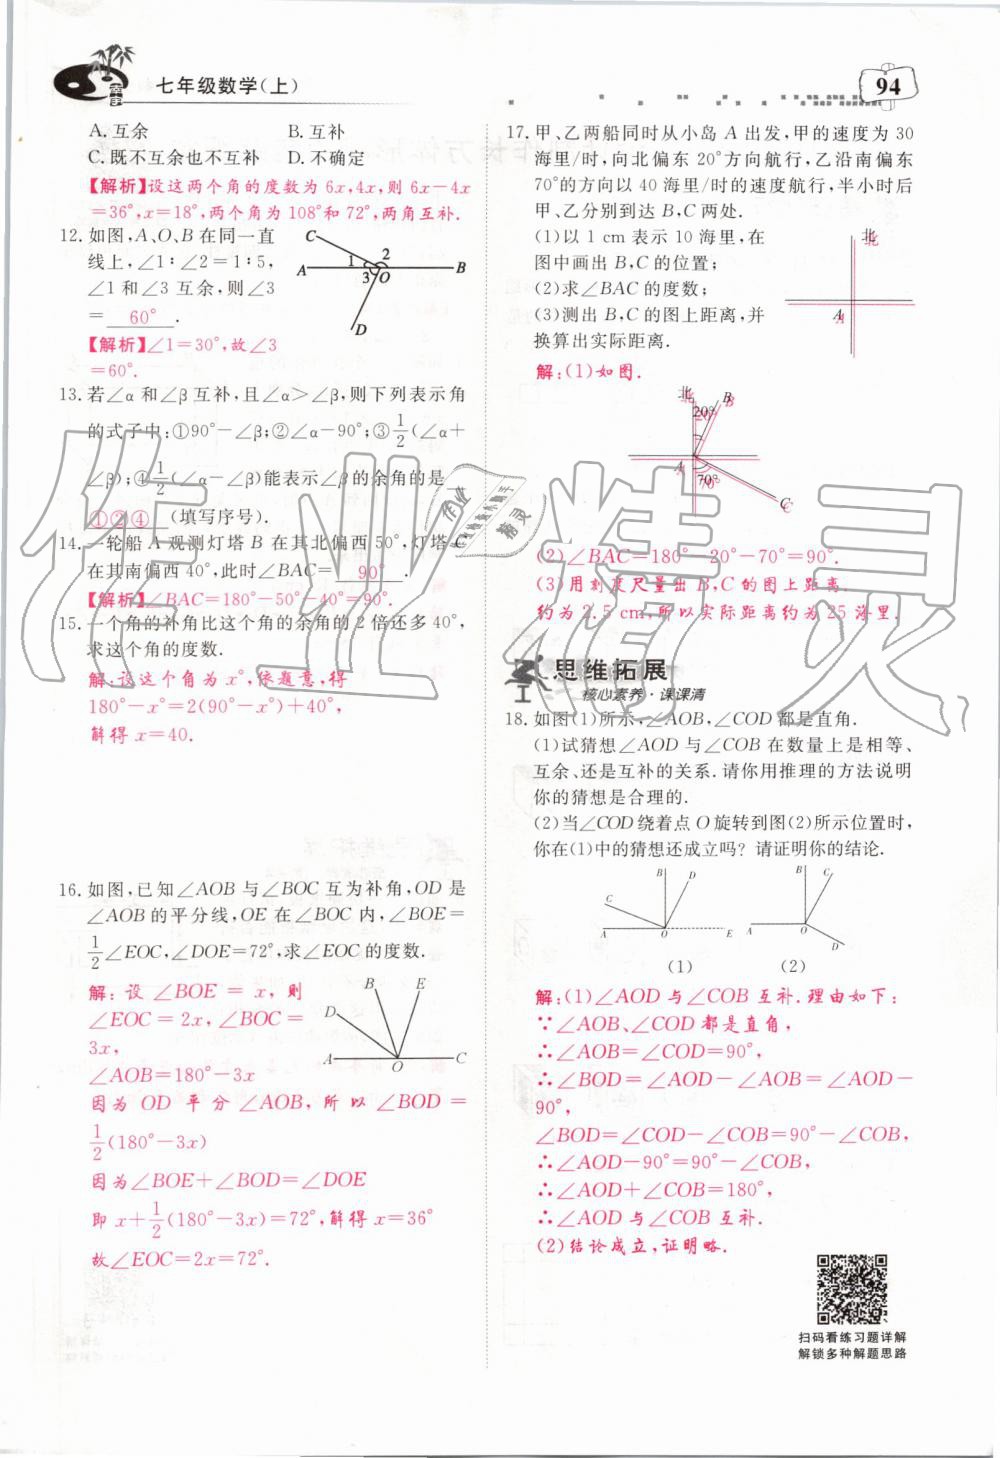 七年级数学(上)
94
A. 互余 B. 互补
C. 既不互余也不互补 D. 不确定
【解析】设这两个角的度数为 6x,4x,则 6x-4x
=36°,x=18°,两个角为 108°和 72°,两角互补.
12. 如图,A、O、B 在同一直
线上,∠1∶∠2=1∶5,
∠1 和∠3 互余,则∠3
= 60° .
【解析】∠1=30°,故∠3
=60°.
C
A
1
2
3
O
B
D
13. 若∠α 和∠β 互补,且∠α>∠β,则下列表示角
的式子中:①90°-∠β;②∠α-90°;③1/2(∠α+
∠β);④1/2(∠α-∠β)能表示∠β 的余角的是
①②④ (填写序号).
14. 一轮船 A 观测灯塔 B 在其北偏西 50°,灯塔 C
在其南偏西 40°,此时∠BAC= 90° .
【解析】∠BAC=180°-50°-40°=90°.
15. 一个角的补角比这个角的余角的 2 倍还多 40°,
求这个角的度数.
解:设这个角为 x°,依题意,得
180°-x°=2(90°-x°)+40°,
解得 x=40.
16. 如图,已知∠AOB 与∠BOC 互为补角,OD 是
∠AOB 的平分线,OE 在∠BOC 内,∠BOE=
1/2∠EOC,∠DOE=72°,求∠EOC 的度数.
解:设 ∠BOE = x, 则
∠EOC = 2x, ∠BOC =
3x,
∠AOB=180°-3x
因为 OD 平分 ∠AOB, 所以 ∠BOD =
1/2(180°-3x)
因为∠BOE+∠BOD=∠DOE
即 x+1/2(180°-3x)=72°,解得 x=36°
故∠EOC=2x=72°.
B
E
D
A
O
C
17. 甲、乙两船同时从小岛 A 出发,甲的速度为 30
海里/时,向北偏东 20°方向航行,乙沿南偏东
70°的方向以 40 海里/时的速度航行,半小时后
甲、乙分别到达 B,C 两处.
(1)以 1 cm 表示 10 海里,在
图中画出 B,C 的位置;
(2)求∠BAC 的度数;
(3)测出 B,C 的图上距离,并
换算出实际距离.
北
A
解:(1)如图.
北
B
20°
A
70°
C
(2)∠BAC=180°-20°-70°=90°.
(3)用刻度尺量出 B,C 的图上距离,
约为 2.5 cm,所以实际距离约为 25 海里.
思维拓展
核心素养·课课清
18. 如图(1)所示,∠AOB,∠COD 都是直角.
(1)试猜想∠AOD 与∠COB 在数量上是相等、
互余、还是互补的关系. 请你用推理的方法说明
你的猜想是合理的.
(2)当∠COD 绕着点 O 旋转到图(2)所示位置时,
你在(1)中的猜想还成立吗? 请证明你的结论.
B
D
C
A
O
E
B
C
A
O
D
(1) (2)
解:(1)∠AOD 与∠COB 互补. 理由如下:
∵∠AOB、∠COD 都是直角,
∴∠AOB=∠COD=90°,
∴∠BOD=∠AOD-∠AOB=∠AOD-
90°,
∠BOD=∠COD-∠COB=90°-∠COB,
∴∠AOD-90°=90°-∠COB,
∴∠AOD+∠COB=180°,
∴∠AOD 与∠COB 互补.
(2)结论成立,证明略.
扫码看练习题详解
解锁多种解题思路
作业精灵